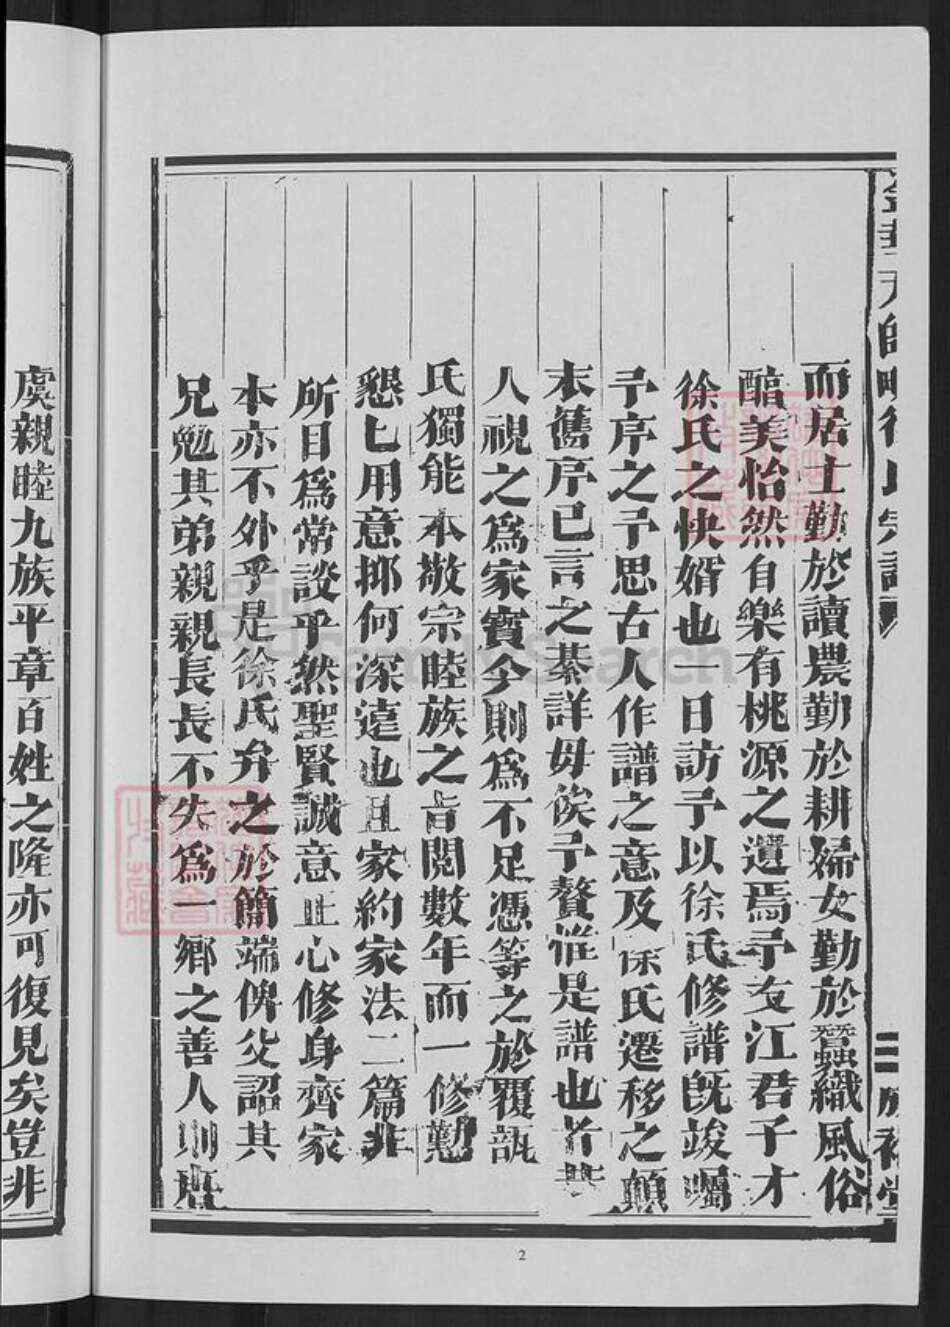 而居士勤於讀農勤於耕婦女勤於蠶織風俗
醕美怡然自樂有桃源之遺焉予友江君子才
徐氏之快婿也一日訪予以徐氏修譜旣竣囑
予序之予思古人作譜之意及徐氏遷移之顛
末舊序已言之綦詳毋俟予贅惟是譜也者昔
人視之為家寶今則為不足憑等之於覆瓿
氏獨能本敬宗睦族之旨閱數年而一修懃
懇七用意抑何深遠也且家約家法二篇非
所目為常談乎然聖賢誠意正心修身齊家
本亦不外乎是徐氏弁之於簡端俾父詔其
兄勉其弟親親長長不失為一鄉之善人則
虞親睦九族平章百姓之隆亦可復見矣豈非
2